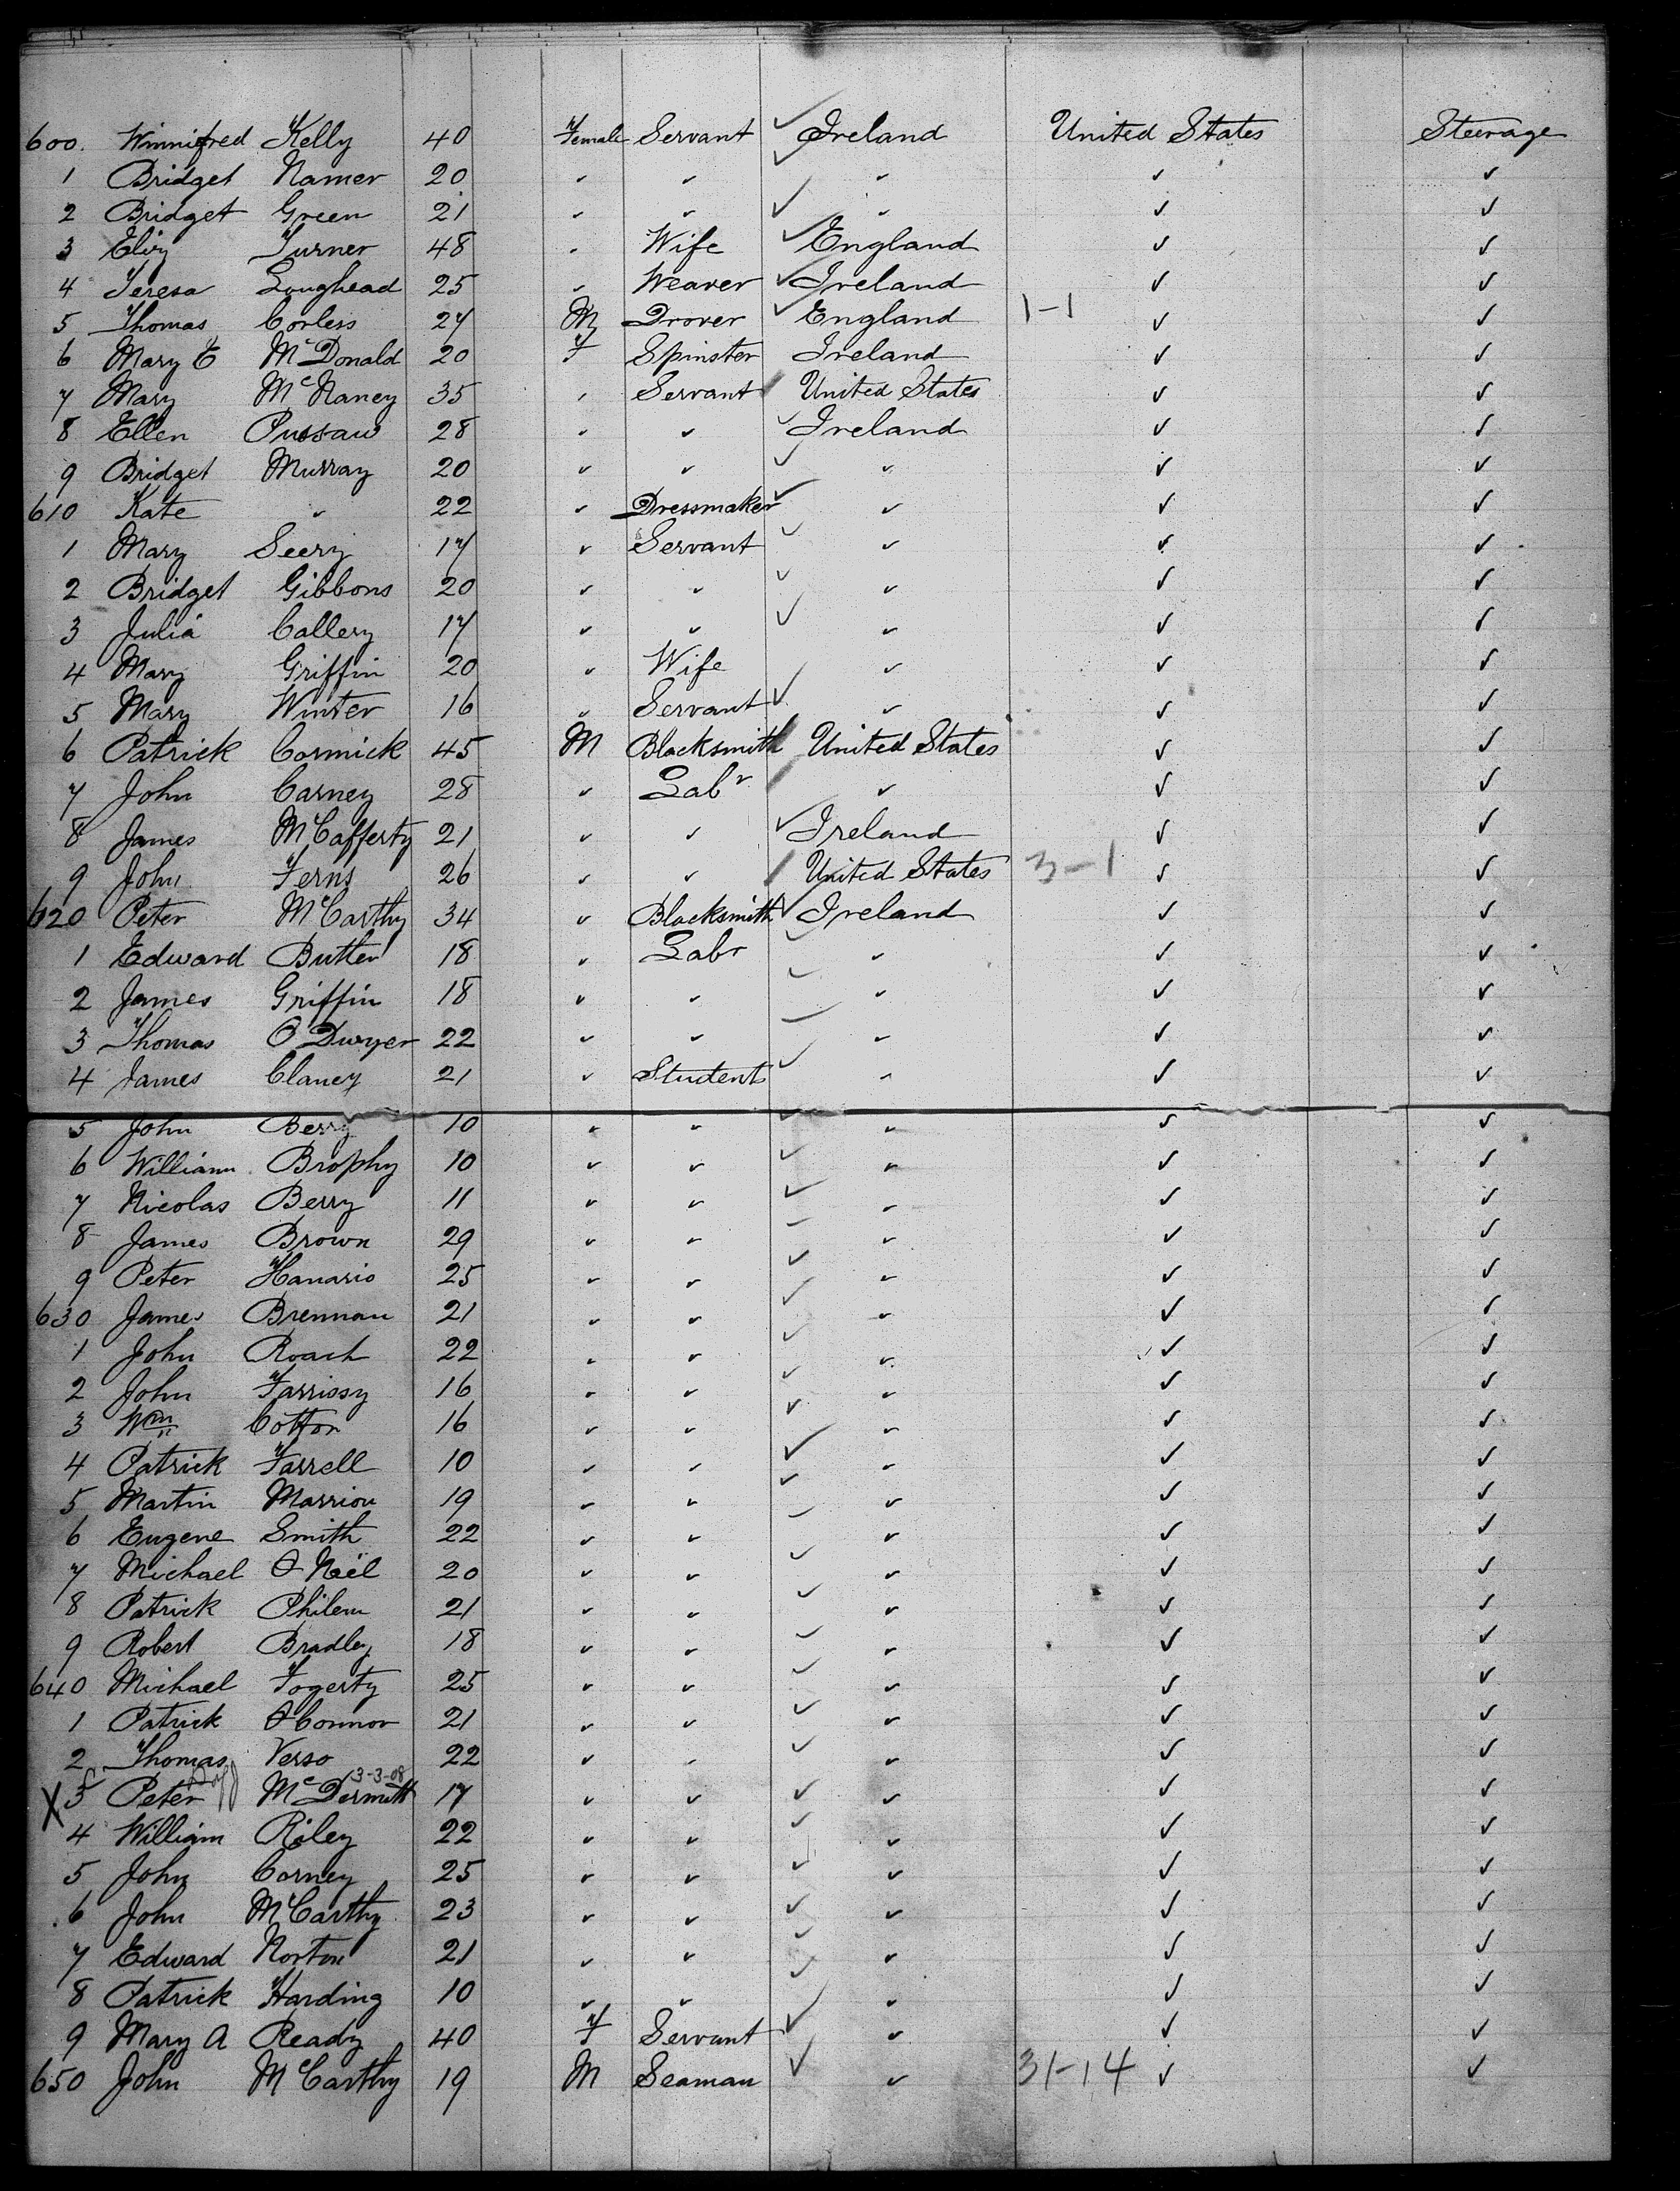 600. Winnifred Kelly 40 Female Servant ✓ Ireland United States Steerage
1 Bridget Namer 20 ✓ ✓ ✓ ✓ ✓ ✓
2 Bridget Green 21 ✓ ✓ ✓ ✓ ✓ ✓
3 Eliz Turner 48 ✓ Wife ✓ England ✓ ✓
4 Teresa Loughead 25 ✓ Weaver ✓ Ireland ✓ ✓
5 Thomas Corless 27 M Drover ✓ England 1-1 ✓ ✓
6 Mary E McDonald 20 F Spinster Ireland ✓ ✓
7 Mary McNaney 35 ✓ Servant / United States ✓ ✓
8 Ellen 28 ✓ ✓ ✓ Ireland ✓ ✓
9 Bridget Murray 20 ✓ ✓ ✓ ✓ ✓ ✓
610 Kate ✓ 22 ✓ Dressmaker ✓ ✓ ✓ ✓
1 Mary Seery 17 ✓ Servant ✓ ✓ ✓ ✓
2 Bridget Gibbons 20 ✓ ✓ ✓ ✓ ✓ ✓
3 Julia Callery 17 ✓ ✓ ✓ ✓ ✓ ✓
4 Mary Griffin 20 ✓ Wife ✓ ✓ ✓ ✓
5 Mary Winter 16 ✓ Servant ✓ ✓ ✓ ✓
6 Patrick Cormick 45 M Blacksmith / United States ✓ ✓
7 John Carney 28 ✓ Labr / ✓ ✓ ✓
8 James McCafferty 21 ✓ ✓ ✓ Ireland ✓ ✓
9 John Ferns 26 ✓ ✓ / United States 3-1 ✓ ✓
620 Peter McCarthy 34 ✓ Blacksmith ✓ Ireland ✓ ✓
1 Edward Butler 18 ✓ Labr ✓ ✓ ✓ ✓
2 James Griffin 18 ✓ ✓ ✓ ✓ ✓ ✓
3 Thomas O'Dwyer 22 ✓ ✓ ✓ ✓ ✓ ✓
4 James Clancy 21 ✓ Student ✓ ✓ ✓ ✓
5 John Berry 10 ✓ ✓ ✓ ✓ ✓ ✓
6 William Brophy 10 ✓ ✓ ✓ ✓ ✓ ✓
7 Nicolas Berry 11 ✓ ✓ ✓ ✓ ✓ ✓
8 James Brown 29 ✓ ✓ ✓ ✓ ✓ ✓
9 Peter Hanario 25 ✓ ✓ ✓ ✓ ✓ ✓
630 James Brennan 21 ✓ ✓ ✓ ✓ ✓ ✓
1 John Roach 22 ✓ ✓ ✓ ✓ ✓ ✓
2 John Farrissy 16 ✓ ✓ ✓ ✓ ✓ ✓
3 Wm Cotton 16 ✓ ✓ ✓ ✓ ✓ ✓
4 Patrick Farrell 10 ✓ ✓ ✓ ✓ ✓ ✓
5 Martin Marrion 19 ✓ ✓ ✓ ✓ ✓ ✓
6 Eugene Smith 22 ✓ ✓ ✓ ✓ ✓ ✓
7 Michael O'Neil 20 ✓ ✓ ✓ ✓ ✓ ✓
8 Patrick Philem 21 ✓ ✓ ✓ ✓ ✓ ✓
9 Robert Bradley 18 ✓ ✓ ✓ ✓ ✓ ✓
640 Michael Fogerty 25 ✓ ✓ ✓ ✓ ✓ ✓
1 Patrick O'Connor 21 ✓ ✓ ✓ ✓ ✓ ✓
2 Thomas Verso 22 ✓ ✓ ✓ ✓ ✓ ✓
3-3-08
X 3 Peter McDermott 17 ✓ ✓ ✓ ✓ ✓ ✓
4 William Riley 22 ✓ ✓ ✓ ✓ ✓ ✓
5 John Corney 25 ✓ ✓ ✓ ✓ ✓ ✓
6 John McCarthy 23 ✓ ✓ ✓ ✓ ✓ ✓
7 Edward Norton 21 ✓ ✓ ✓ ✓ ✓ ✓
8 Patrick Harding 10 ✓ ✓ ✓ ✓ ✓ ✓
9 Mary A Ready 40 F Servant ✓ ✓ ✓ ✓
650 John McCarthy 19 M Seaman ✓ ✓ 31-14 ✓ ✓